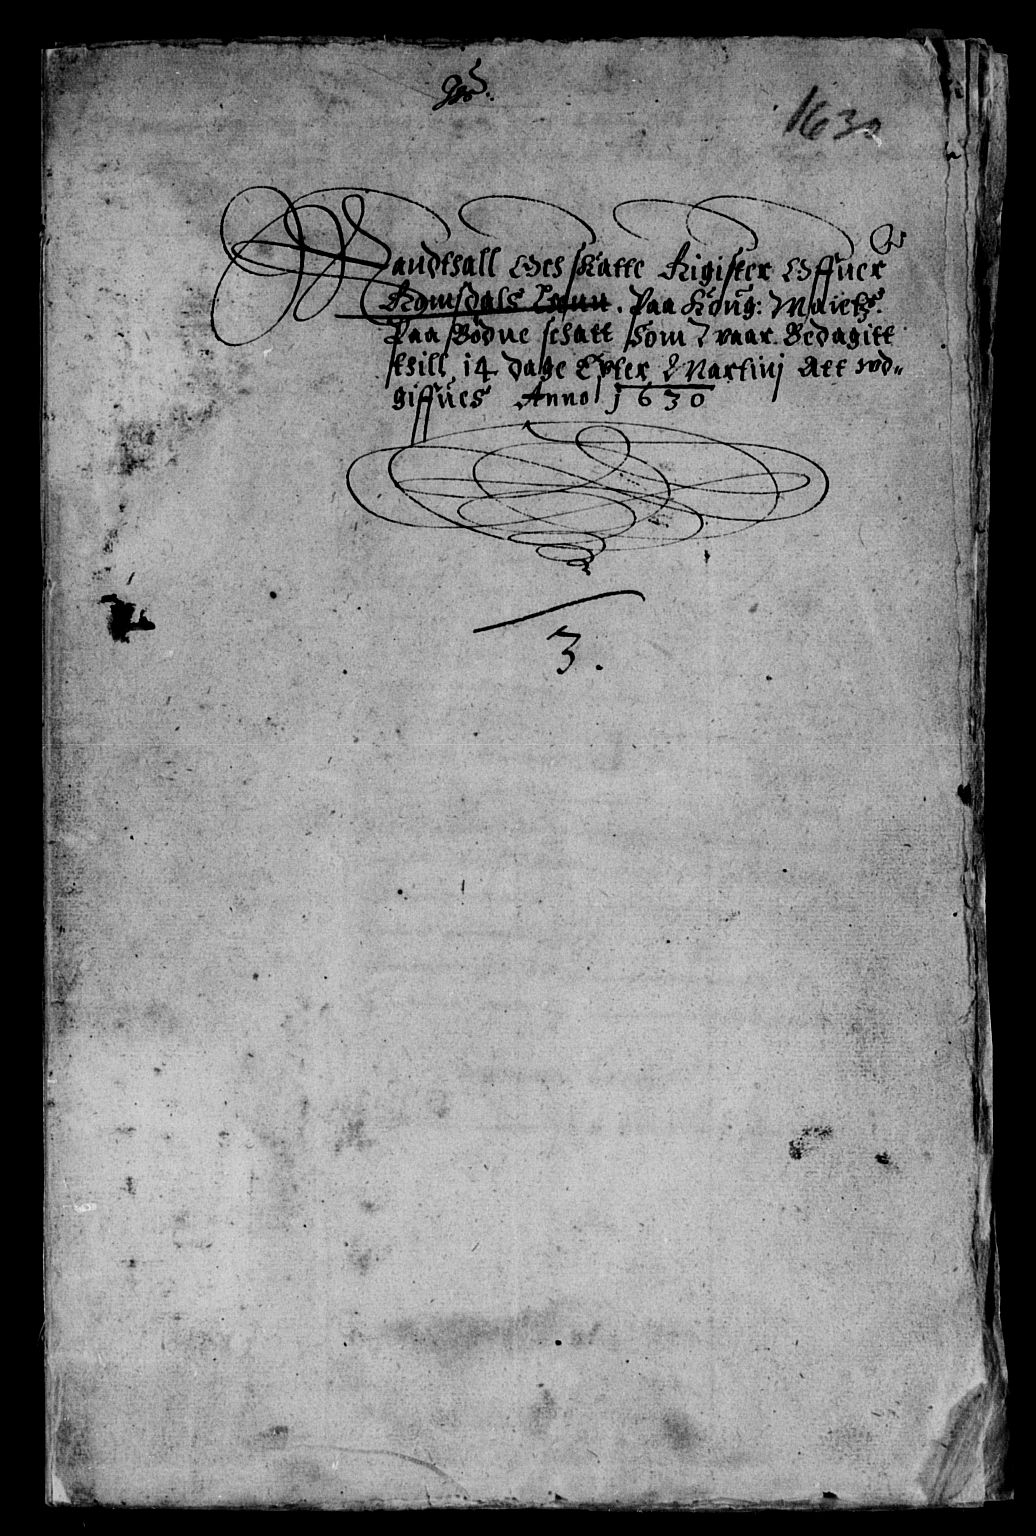 1630
Mandthall Och skatte Rigister Offuer
Romsdals Lenn. Paa Kong: Maietz.
Paa Bödne schatt som Vaar Bedagitt
thill 14 dage Epter Martinj Att wd-
giffues Anno 1630
3.